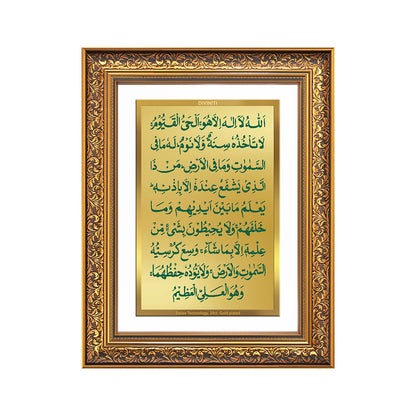 DIVINITI
اَللّٰهُ لَاۤ اِلٰهَ اِلَّا هُوَۚ اَلْحَىُّ الْقَيُّوْمُ ۚ
لَا تَاْخُذُهٗ سِنَةٌ وَّلَا نَوْمٌ ؕ لَهٗ مَا فِى
السَّمٰوٰتِ وَمَا فِى الْاَرْضِ ؕ مَنْ ذَا
الَّذِىْ يَشْفَعُ عِنْدَهٗۤ اِلَّا بِاِذْنِهٖ ؕ
يَعْلَمُ مَا بَيْنَ اَيْدِيْهِمْ وَمَا
خَلْفَهُمْ ۚ وَلَا يُحِيْطُوْنَ بِشَىْءٍ مِّنْ
عِلْمِهٖۤ اِلَّا بِمَا شَآءَ ۚ وَسِعَ كُرْسِيُّهُ
السَّمٰوٰتِ وَالْاَرْضَ ۚ وَلَا يَـُٔوْدُهٗ حِفْظُهُمَا ۚ
وَهُوَ الْعَلِىُّ الْعَظِيْمُ
Swiss Technology, 24ct. Gold plated